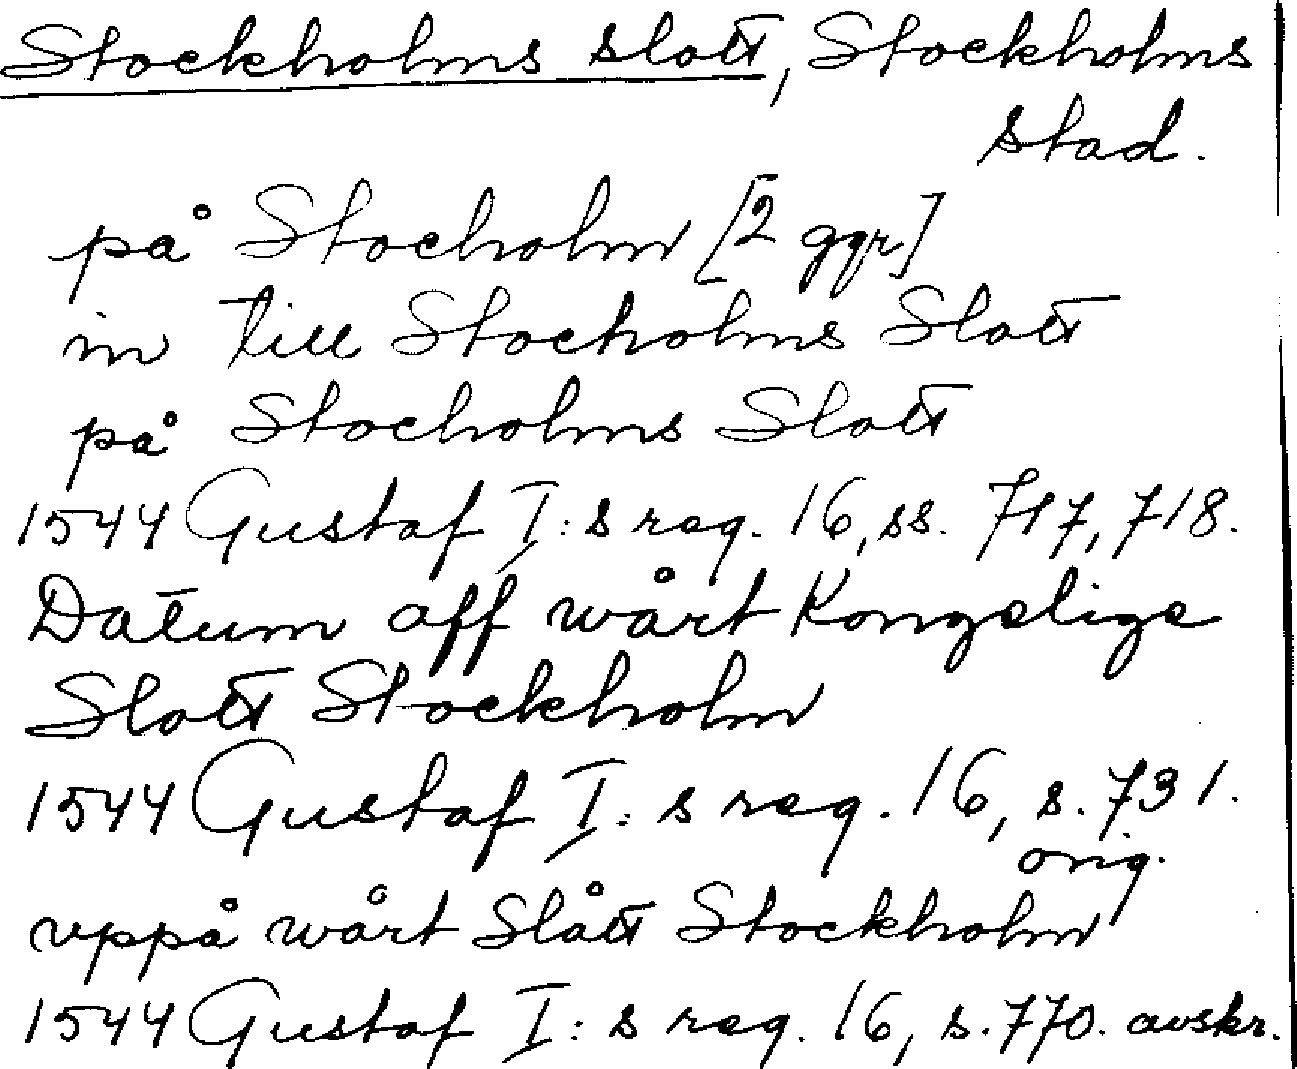 Stockholms slott, Stockholms
stad.
på Stocholm [2 ggr]
in till Stocholms Slott
på Stocholms Slott
1544 Gustaf I:s reg. 16, ss. 717, 718.
Datum aff wårt Kongelige
Slott Stockholm
1544 Gustaf I:s reg. 16, s. 731.
orig.
vppå wårt Slått Stockholm
1544 Gustaf I:s reg. 16, s. 770. avskr.